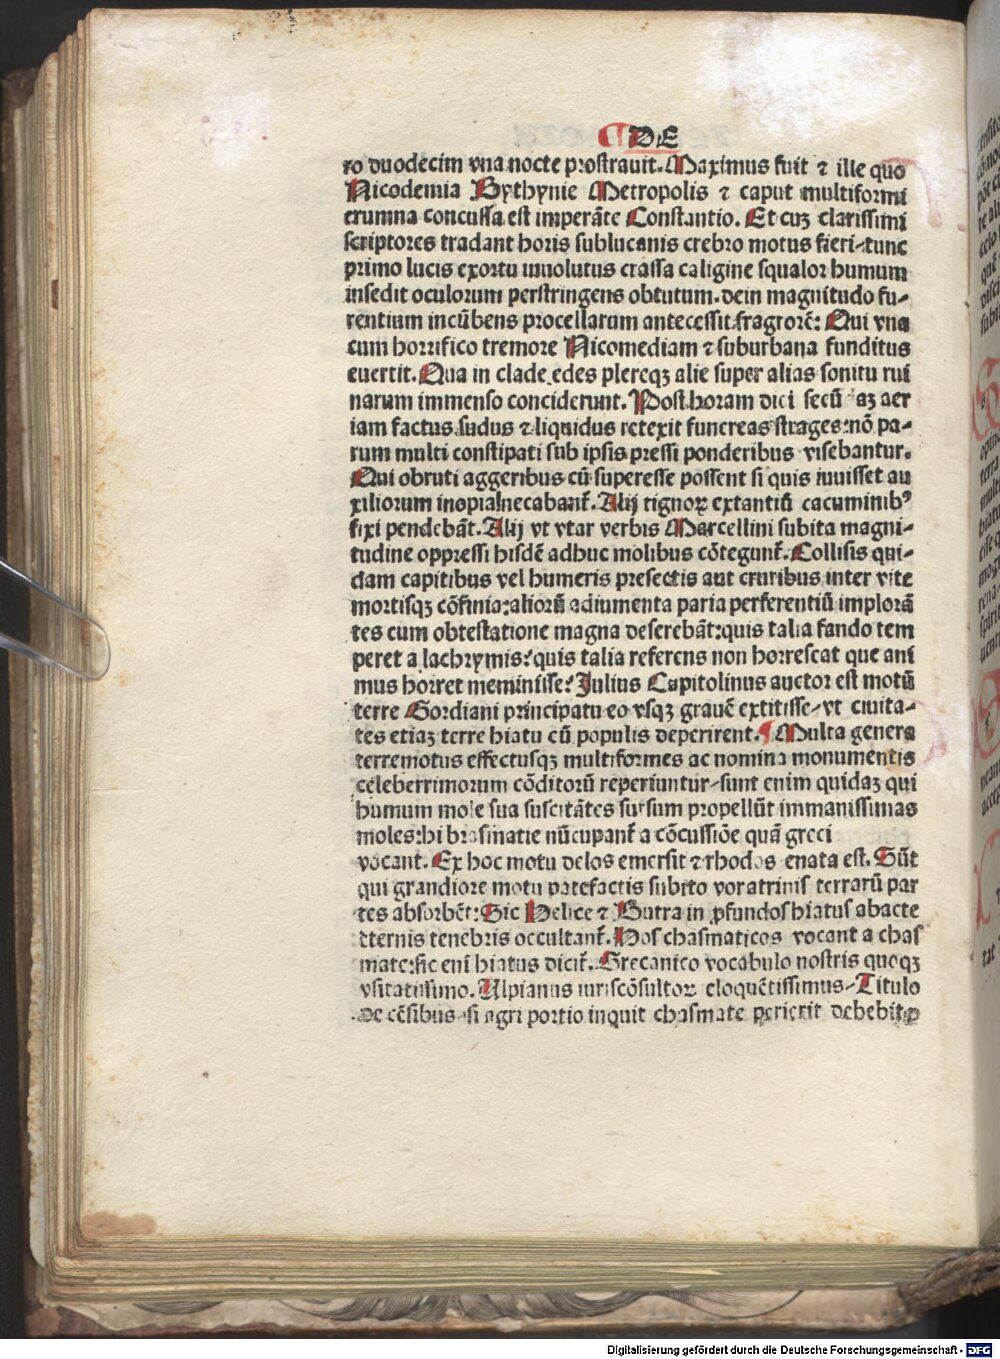 DE
ro duodecim vna nocte prostrauit. Maximus fuit ⁊ ille quo
Nicodemia Bythynie Metropolis ⁊ caput multiformi
erumna concussa est imperāte Constantio. Et cuꝫ clarissimi
scriptores tradant horis sublucanis crebro motus fieri-tunc
primo lucis exortu inuolutus crassa caligine squalor humum
insedit oculorum perstringens obtutum. dein magnitudo fu-
rentium incūbens procellarum antecessit fragrorē: Qui vna
cum horrifico tremore Nicomediam ⁊ suburbana funditus
euertit. Qua in clade edes plereqꝫ alie super alias sonitu rui
narum immenso conciderunt. Post horam dici secū aꝫ aer
iam factus sudus ⁊ liquidus retexit funereas strages: nō pa-
rum multi constipati sub ipsis pressi ponderibus visebantur.
Qui obruti aggeribus cū superesse possent si quis iuuisset au
xiliorum inopia necabant̄. Alij tignoꝝ extantiū cacuminibꝰ
fixi pendebāt. Alij vt vtar verbis Marcellini subita magni-
tudine oppressi hisdē adhuc molibus cōtegunt̄. Collisis qui-
dam capitibus vel humeris presectis aut cruribus inter vite
mortisqꝫ cōfinia: aliorū adiumenta paria perferentiū implorā
tes cum obtestatione magna deserebāt: quis talia fando tem
peret a lachrymis? quis talia referens non horrescat que ani
mus horret meminisse? Julius Capitolinus auctor est motū
terre Gordiani principatu eo vsqꝫ grauē extitisse-vt ciuita-
tes etiaꝫ terre hiatu cū populis deperirent. ¶ Multa genera
terremotus effectusqꝫ multiformes ac nomina monumentis
celeberrimorum cōditorū reperiuntur-sunt enim quidaꝫ qui
humum mole sua suscitātes sursum propellūt immanissimas
moles: hi brasmatie nūcupant̄ a cōcussiōe quā greci
vocant. Ex hoc motu delos emersit ⁊ rhodos enata est. Sūt
qui grandiore motu patefactis subito voratrinis terrarū par
tes absorbēt: Sic Helice ⁊ Butra in ꝓfundos hiatus abacte
eternis tenebris occultant̄. Hos chasmaticos vocant a chas
mate: sic eni hiatus dicit̄. Grecanico vocabulo nostris quoqꝫ
vsitatissimo. Ulpianus iuriscōsultor eloquētissimus-Titulo
de cēsibus-si agri portio inquit chasmate perierit debebit ꝑ
Digitalisierung gefördert durch die Deutsche Forschungsgemeinschaft - DFG